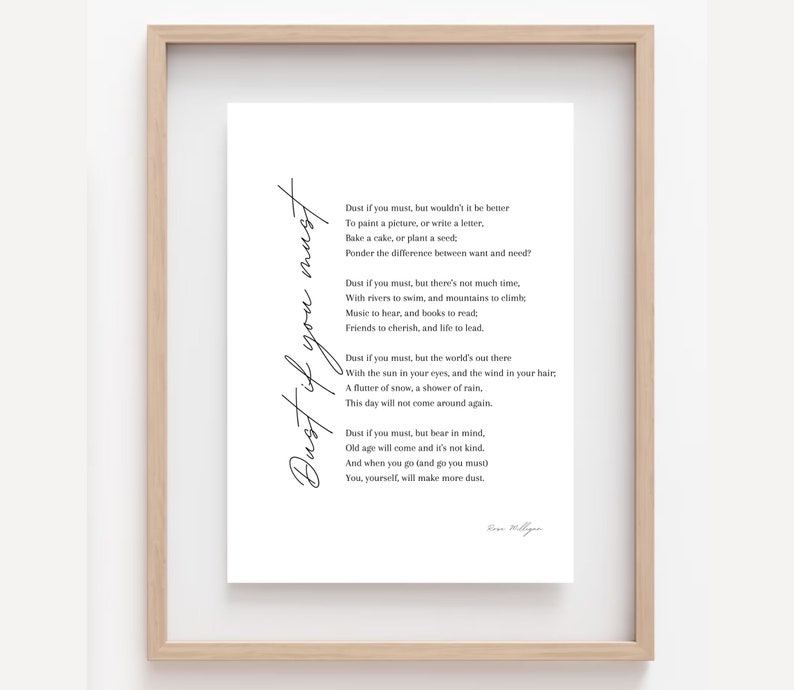 Dust if you must
Dust if you must, but wouldn't it be better
To paint a picture, or write a letter,
Bake a cake, or plant a seed;
Ponder the difference between want and need?
Dust if you must, but there's not much time,
With rivers to swim, and mountains to climb;
Music to hear, and books to read;
Friends to cherish, and life to lead.
Dust if you must, but the world's out there
With the sun in your eyes, and the wind in your hair;
A flutter of snow, a shower of rain,
This day will not come around again.
Dust if you must, but bear in mind,
Old age will come and it's not kind.
And when you go (and go you must)
You, yourself, will make more dust.
Rose Milligan